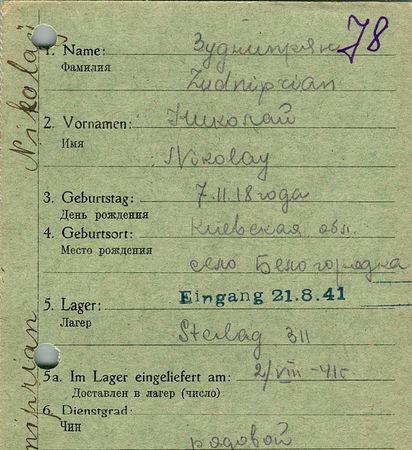 78
1. Name: Зуднипрян
Фамилия
Zudniprian
2. Vornamen: Николай
Имя
Nikolay
3. Geburtstag: 7.11.18 года
День рождения
4. Geburtsort: Киевская обл.
Место рождения
село Белогородка
Eingang 21.8.41
5. Lager:
Лагерь
Stalag 311
5a. Im Lager eingeliefert am: 2/VIII-41г.
Доставлен в лагерь (число)
6. Dienstgrad:
Чин
рядовой
Nikolaj
niprian